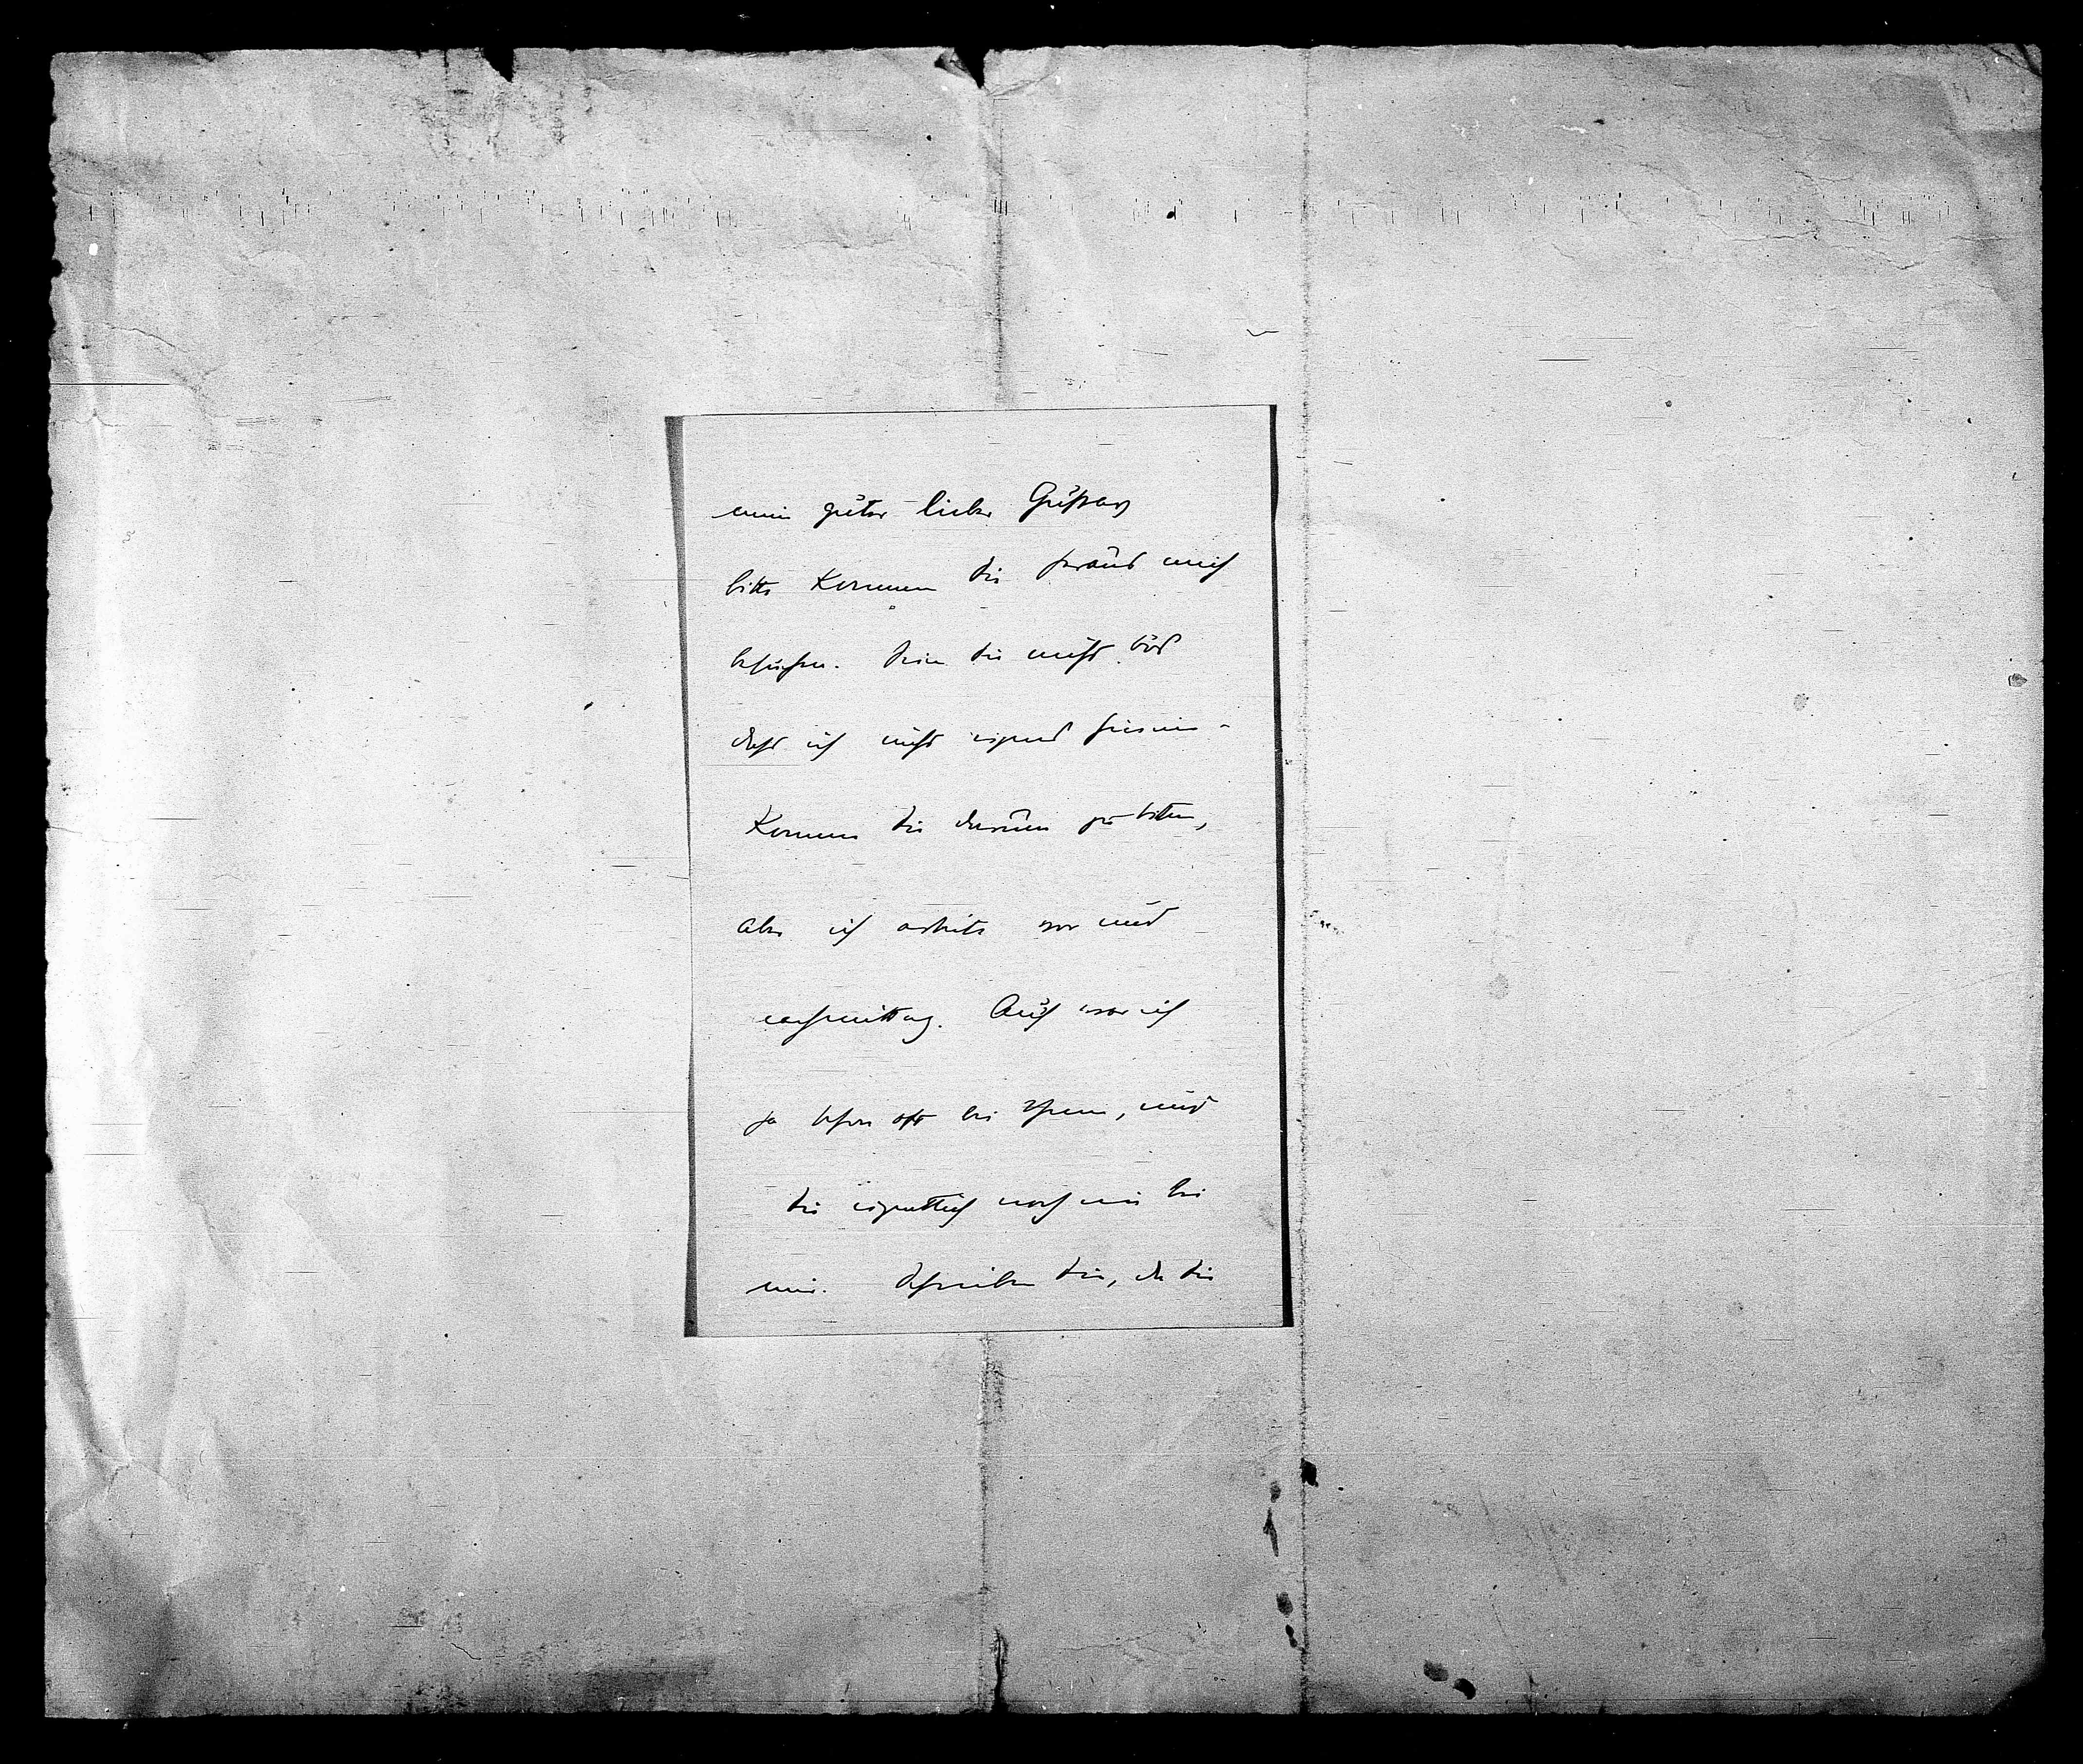 mein guter lieber Gustav
bitte kommen Sie heraus mich
besuchen. Seien Sie nicht bös
dass ich nicht eigens hinein-
komme Sie darum zu bitten,
aber ich arbeite vor und
nachmittag. Auch war ich
ja schon oft bei Ihnen, und
Sie eigentlich noch nie bei
mir. Schreiben Sie, da Sie